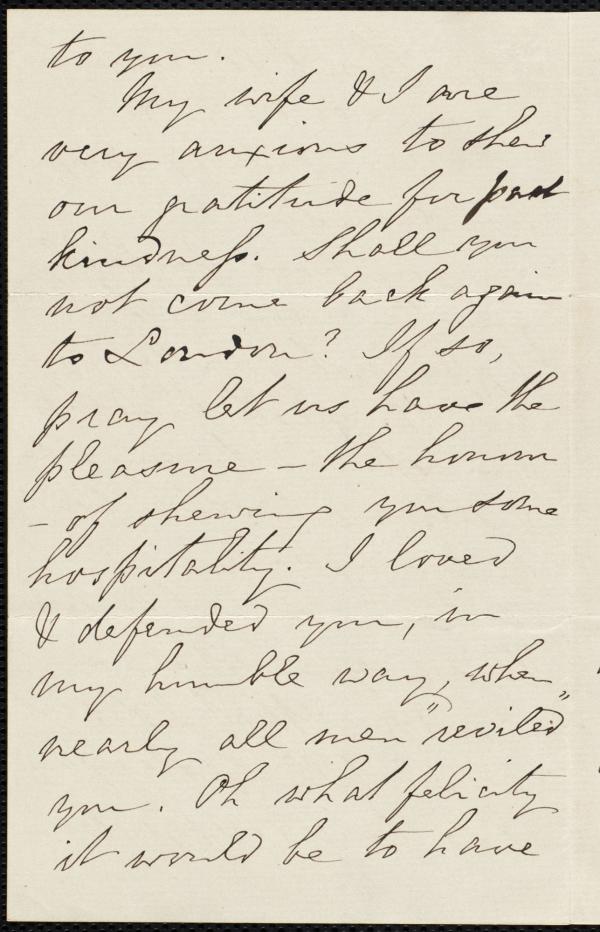 to you.
My wife & I are
very anxious to shew
our gratitude for past
kindness. Shall you
not come back again
to London? If so,
pray let us have the
pleasure – the honour
– of shewing you some
hospitality. I loved
& defended you, in
my humble way, when
nearly all men "reviled"
you. Oh what felicity
it would be to have